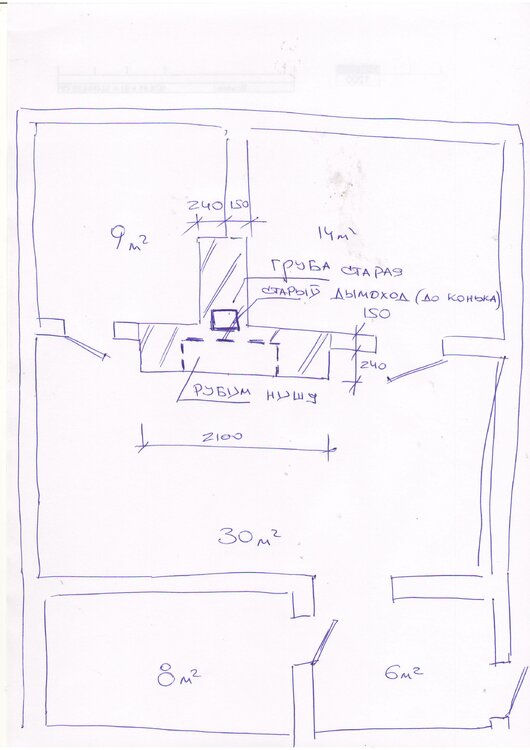 240 150
9 м²
14 м²
ГРУБА СТАРАЯ
СТАРЫЙ ДЫМОХОД (ДО КОНЬКА)
150
240
РУБИМ НИШУ
2100
30 м²
8 м²
6 м²